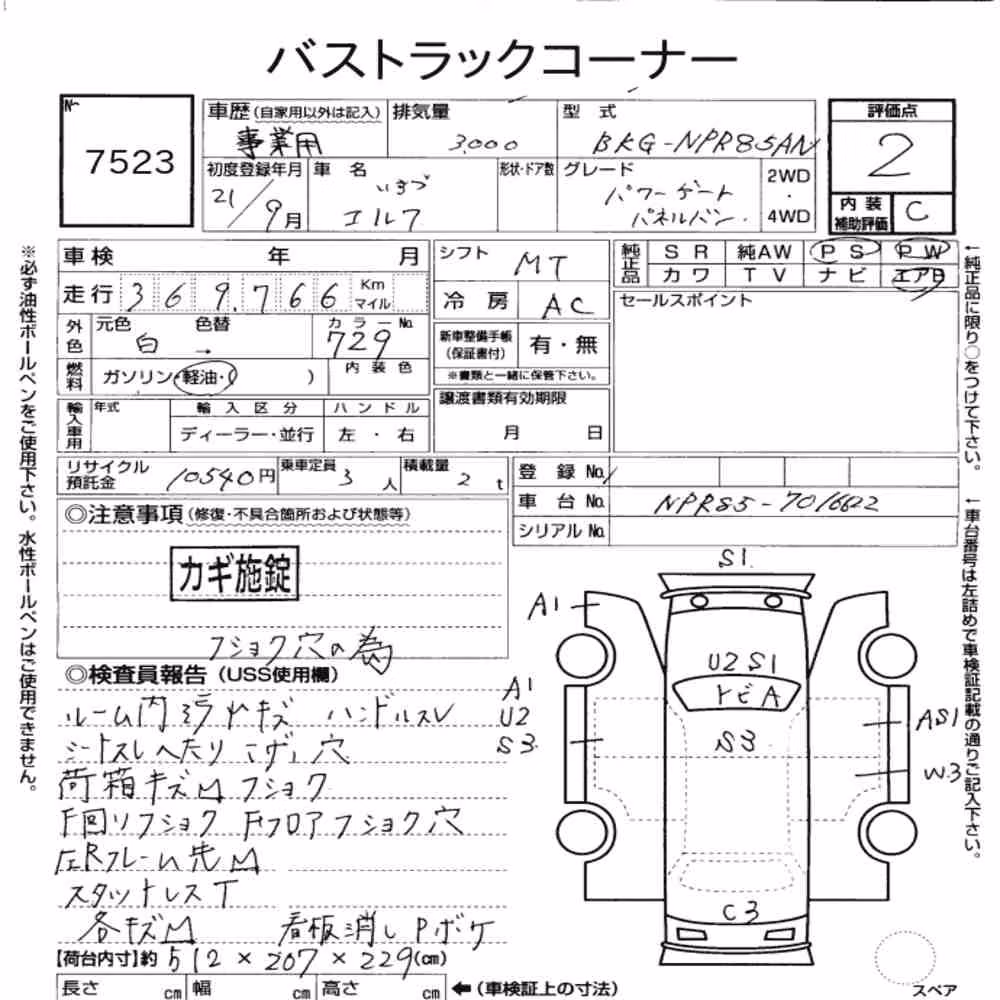 バストラックコーナー
№
7523
車歴 (自家用以外は記入) 排気量 型式
事業用 3,000 BKG-NPR85AN
初度登録年月 車名 形状・ドア数 グレード 2WD ・ 4WD
21/9月 いすゞ エルフ パワーゲート パネルバン
評価点
2
内装補助評価 C
車検 年 月
走行 369,766 Km マイル
外色 元色 色替 カラーNo.
白 → 729
燃料 ガソリン・軽油・( ) 内装色
輸入車用 年式 輸入区分 ハンドル
ディーラー・並行 左・右
シフト MT
冷房 AC
新車整備手帳 (保証書付) 有・無
※書類と一緒に保管下さい。
譲渡書類有効期限
月 日
純正品 SR 純AW PS PW
カワ TV ナビ エアB
セールスポイント
リサイクル預託金 10540円 乗車定員 3人 積載量 2t
登録No.
車台No. NPR85-7016622
シリアルNo.
◎注意事項 (修復・不具合箇所および状態等)
カギ施錠
フショク穴の為
◎検査員報告 (USS使用欄)
ルーム内ヨゴレヤキズ ハンドルスレ
シートスレヘたり コゲ、穴
荷箱キズM フショク
F回リフショク Fフロアフショク穴
左Rフレーム先M
スタットレスT
各キズM 看板消しPボケ
【荷台内寸】約 512 × 207 × 229(cm)
長さ cm 幅 cm 高さ cm ←(車検証上の寸法)
S1
A1
U2 S1
トビA
A1
U2
S3
S3
AS1
W3
C3
スペア
※必ず油性ボールペンをご使用下さい。水性ボールペンはご使用できません。
←純正品に限り○をつけて下さい。
←車台番号は左詰めで車検証記載の通りご記入下さい。